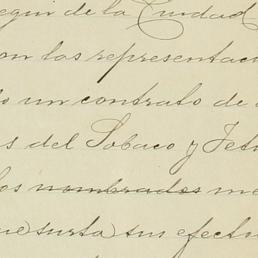 egui de la Ciudad
on los representac
o un contrato de
s del Tobaco y Fetu
los nombrados me
ue surta sus efectu